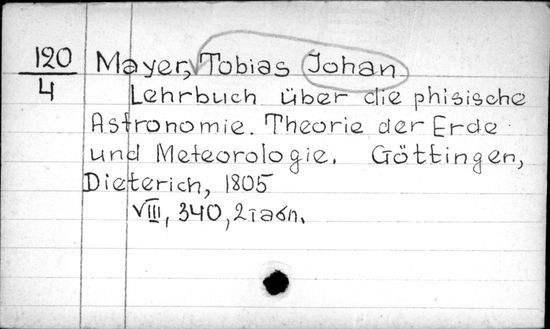 120
4
Mayer, Tobias Johan
Lehrbuch über die phisische
Astronomie. Theorie der Erde
und Meteorologie. Göttingen,
Dieterich, 1805
VIII, 340, 2 табл.